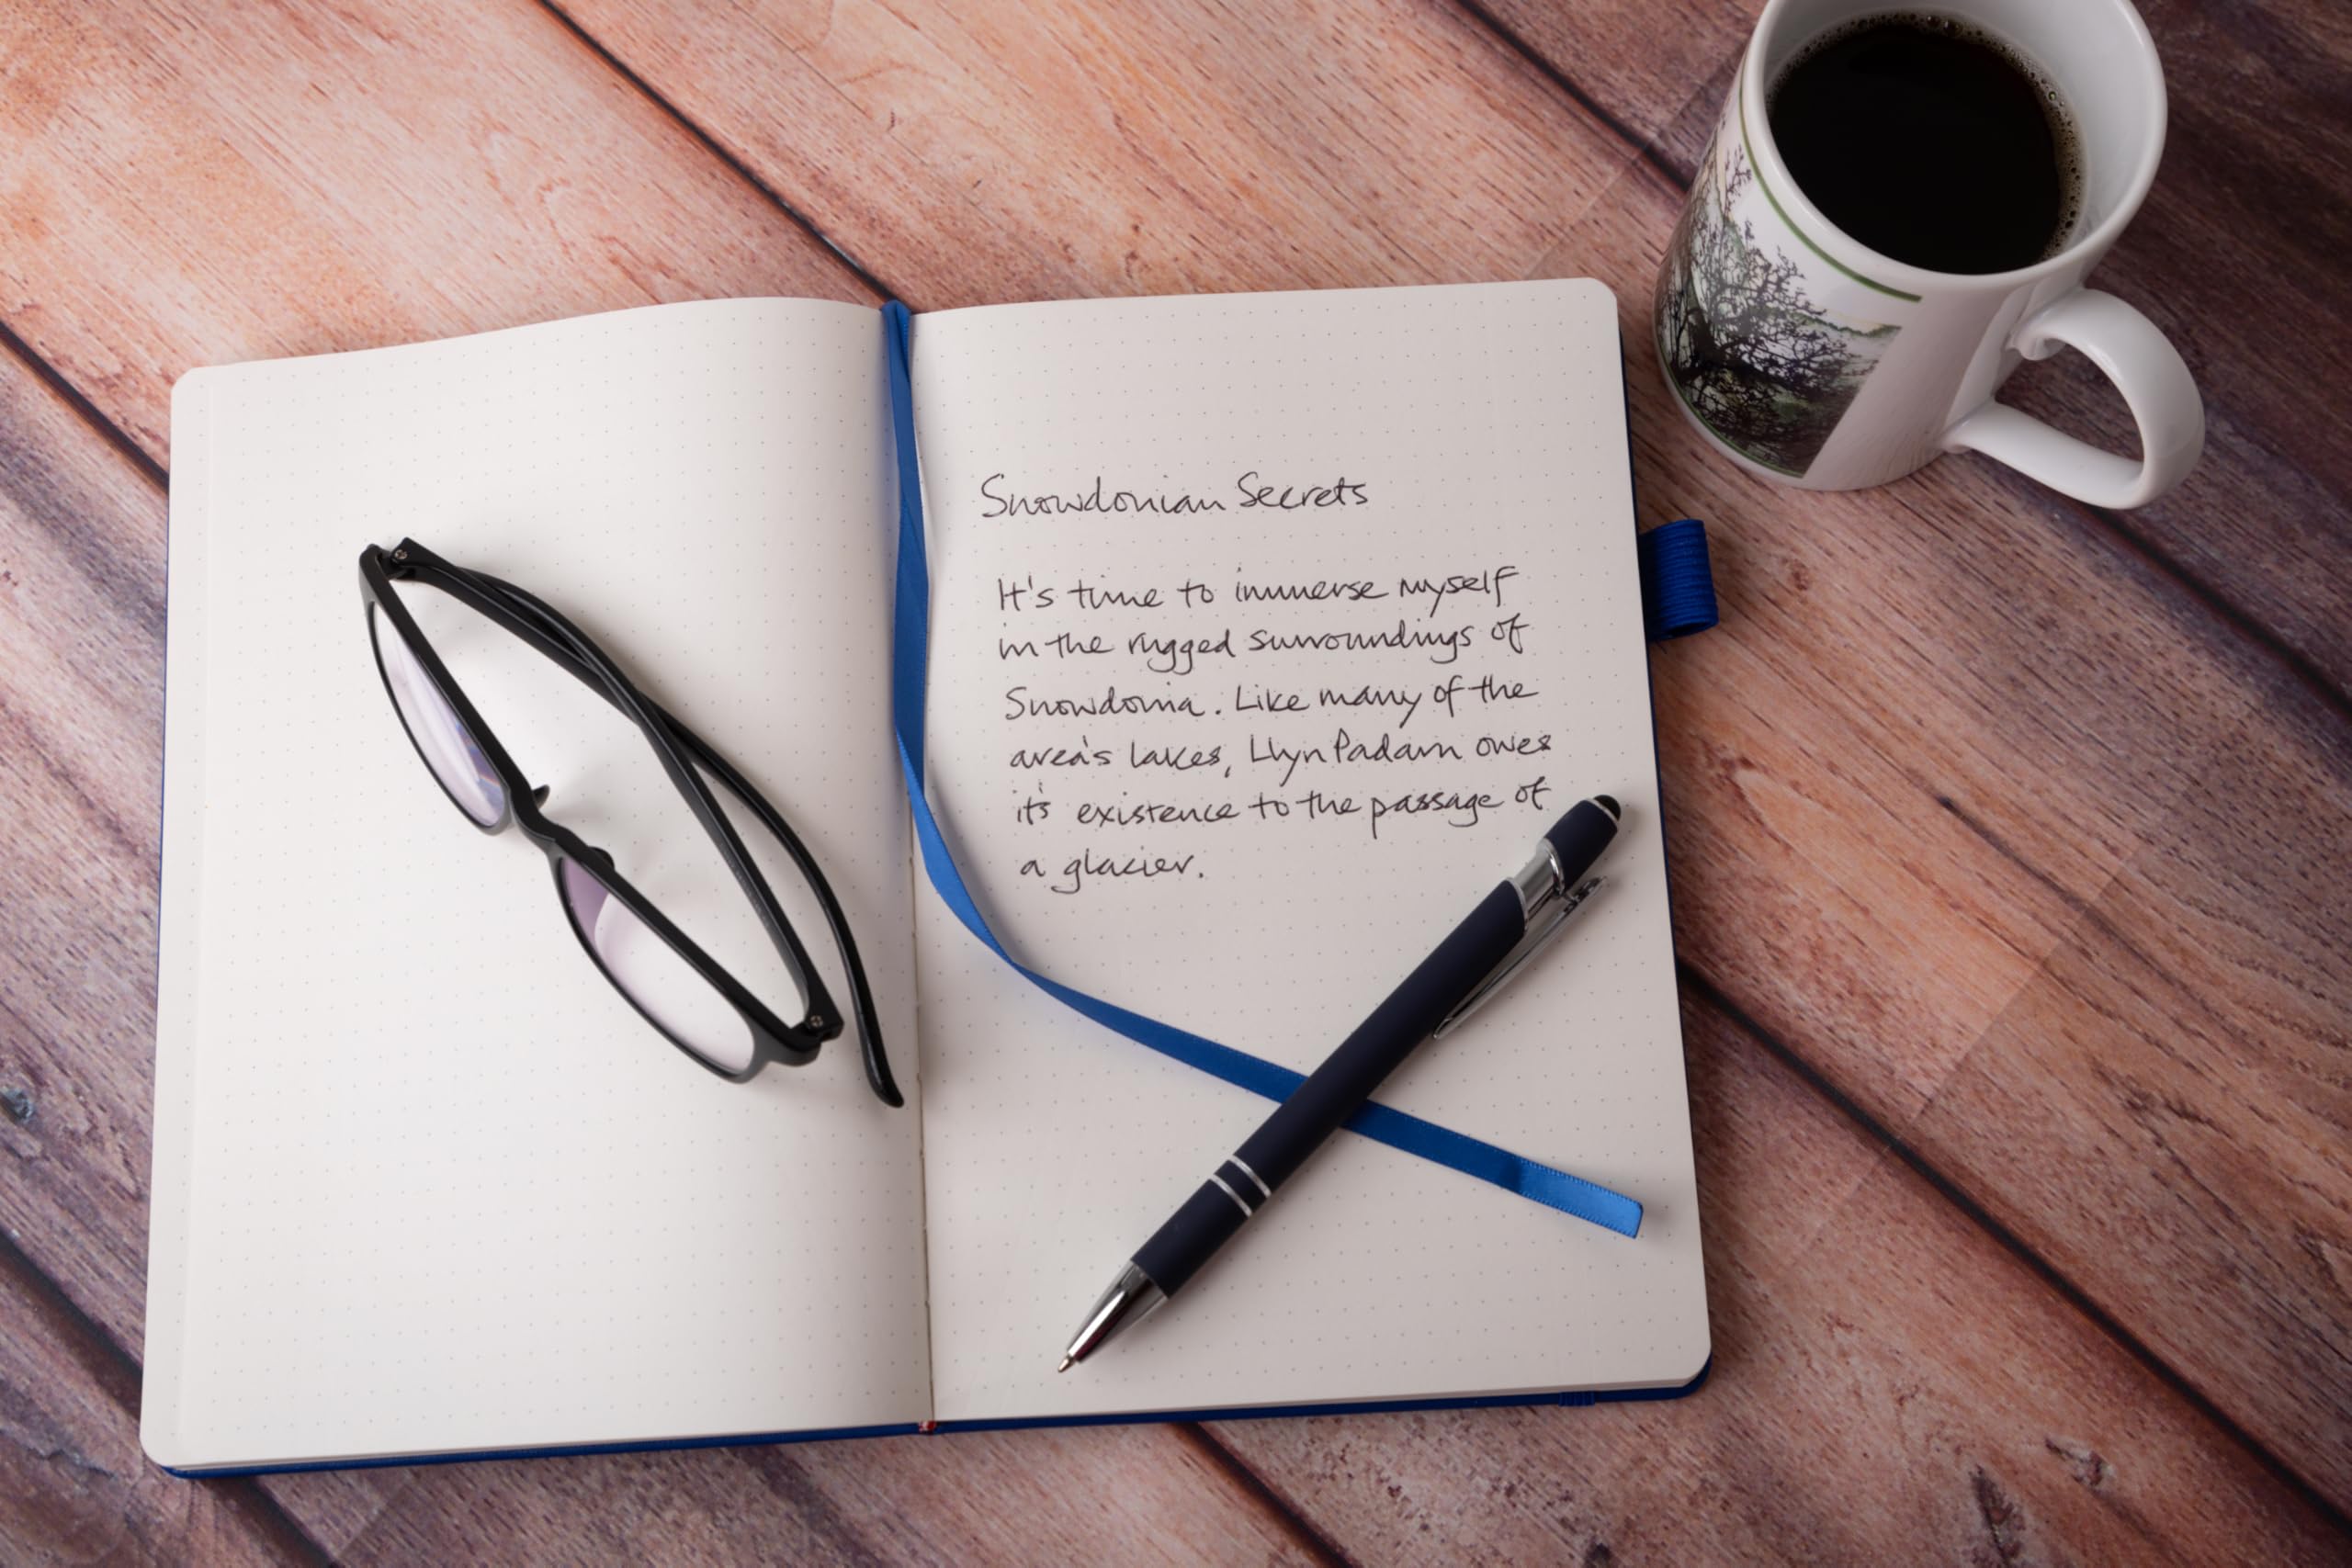 Snowdonian Secrets
It's time to immerse myself
in the rugged surroundings of
Snowdonia. Like many of the
area's lakes, Llyn Padarn owes
it's existence to the passage of
a glacier.